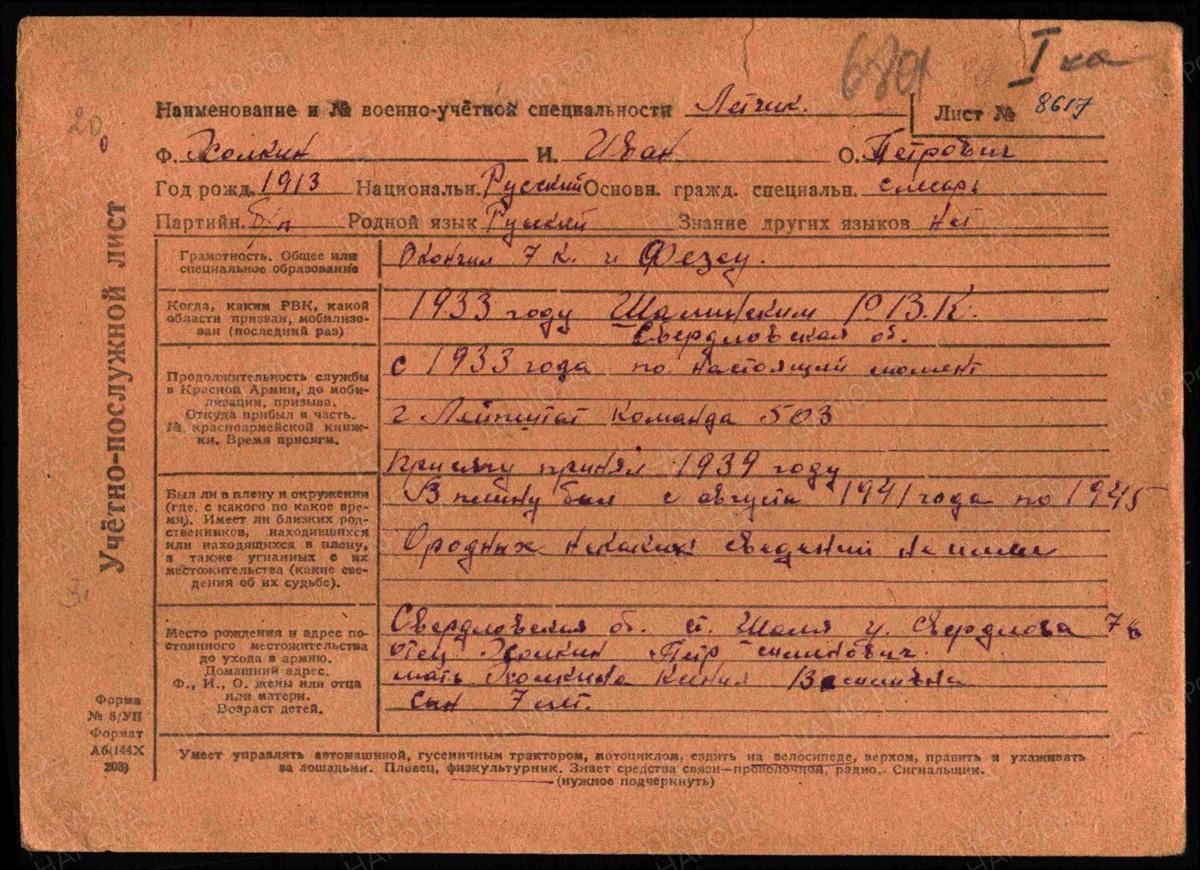 680
I ка
Наименование и № военно-учётной специальности Летчик.
Лист № 8617
20
Ф. Холкин И. Иван О. Петрович
Год рожд. 1913 Национальн. Русский Основн. гражд. специальн. слесарь
Партийн. б/п Родной язык Руский Знание других языков нет
Учётно-послужной лист
Грамотность. Общее или
специальное образование
Окончил 7 к. и Фезеу.
Когда, каким РВК, какой
области призван, мобилизо-
ван (последний раз)
1933 году Шалинским Р.В.К.
Свердловская об.
Продолжительность службы
в Красной Армии, до моби-
лизации, призыва.
Откуда прибыл в часть.
№ красноармейской книж-
ки. Время присяги.
с 1933 года по настоящий момент
г Команда 503
Присягу принял 1939 году
Был ли в плену и окружении
(где, с какого по какое вре-
мя). Имеет ли близких род-
ственников, находившихся
или находящихся в плену,
а также угнанных с их
местожительства (какие све-
дения об их судьбе).
В плену был с августа 1941 года по 1945
О родных никаких сведений не имею
Место рождения и адрес по-
стоянного местожительства
до ухода в армию.
Домашний адрес.
Ф., И., О. жены или отца
или матери.
Возраст детей.
Свердловская об. ст. Шаля у. Свердлова 7
отец Холкин Петр
мать Холкина
сын 7 лет.
Форма
№ 8/УП
Формат
А6(144Х
203)
Умеет управлять автомашиной, гусеничным трактором, мотоциклом, ездить на велосипеде, верхом, править и ухаживать
за лошадьми. Пловец, физкультурник. Знает средства связи—проволочной, радио. Сигнальщик.
(нужное подчеркнуть)